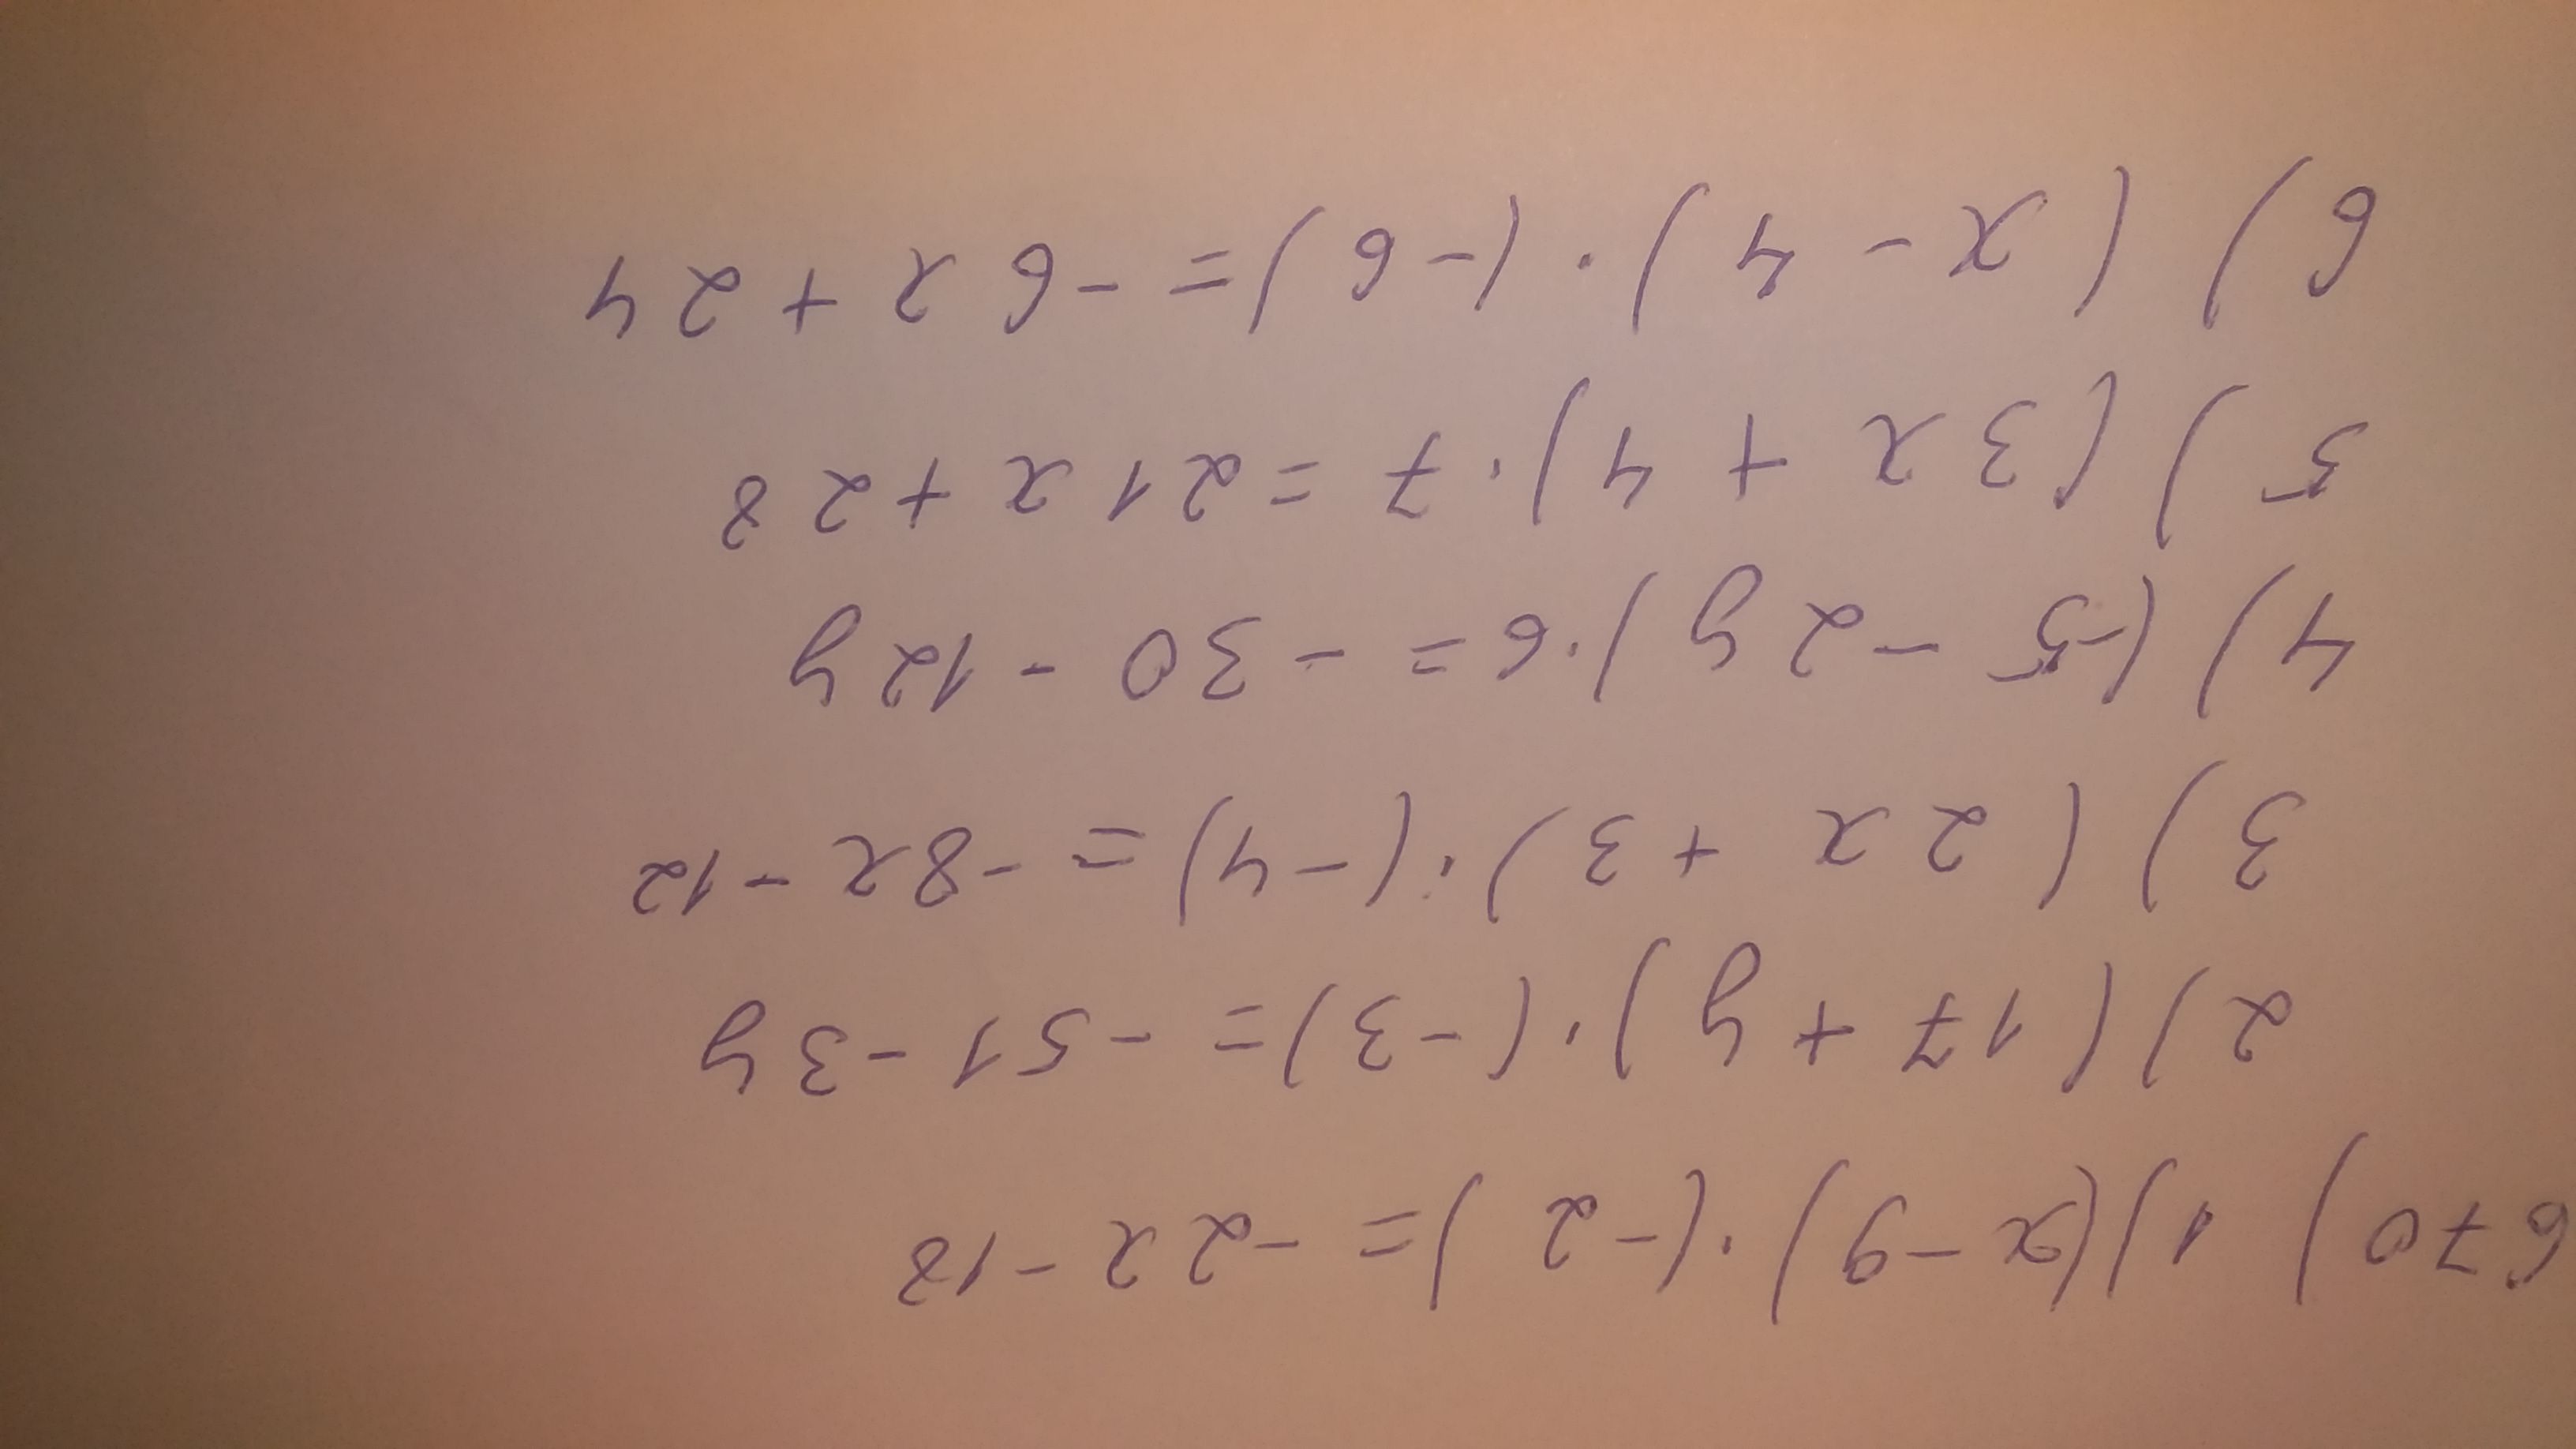 670) 1) (x - 9) · (-2) = -2x - 18
2) (17 + y) · (-3) = -51 - 3y
3) (2x + 3) · (-4) = -8x - 12
4) (-5 - 2y) · 6 = -30 - 12y
5) (3x + 4) · 7 = 21x + 28
6) (x - 4) · (-6) = -6x + 24